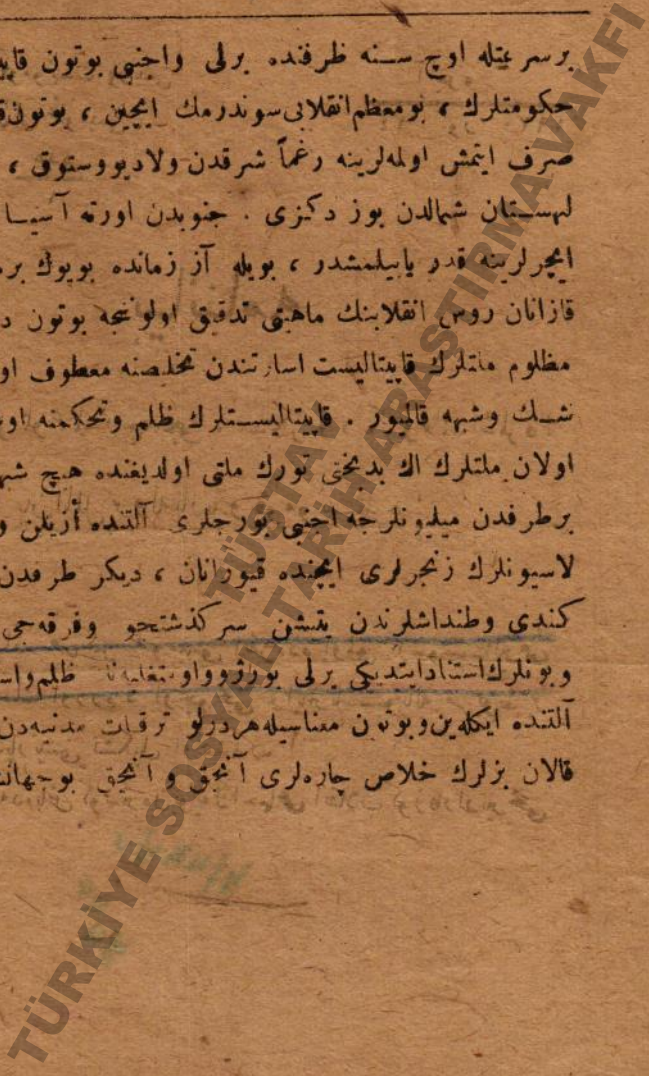 برسرعتله اوچ سنه ظرفنده یرلی واجنبی بوتون قاپی
حکومتلرك ، بومعظم انقلابی سوندرمك ایچین ، بوتون ق
صرف ایتمش اولمه‌لرینه رغماً شرقدن ولادیووستوق ،
لهستان شمالدن بوز دکزی . جنوبدن اورته آسیا
ایچرلرینه قدر یاییلمشدر ، بویله آز زمانده بویوك بر
قازانان روس انقلابنك ماهیتی تدقیق اولونجه بوتون د
مظلوم ملتلرك قاپیتالیست اسارتندن تخلیصنه معطوف او
شك وشبهه قالمیور . قاپیتالیستلرك ظلم وتحکمنه او
اولان ملتلرك اك بدبختی تورك ملتی اولدیغنده هیچ شبه
برطرفدن میلیونلرجه اجنبی بورجلری آلتنده أزیلن و
لاسیونلرك زنجرلری ایچنده قیورانان ، دیکر طرفدن
کندی وطنداشلرندن یتیشن سرکذشتجو وفرقه‌جی
وبونلرك استناد ایتدیکی یرلی بورژووا ومتغلبه‌نك ظلم واس
آلتنده ایکله‌ین وبوتون معناسیله هردرلو ترقیات مدنیه‌دن
قالان بزلرك خلاص چاره‌لری آنجق و آنجق بوجهان
TÜRKİYE SOSYAL TARİH ARAŞTIRMA VAKFI
TÜSTAV